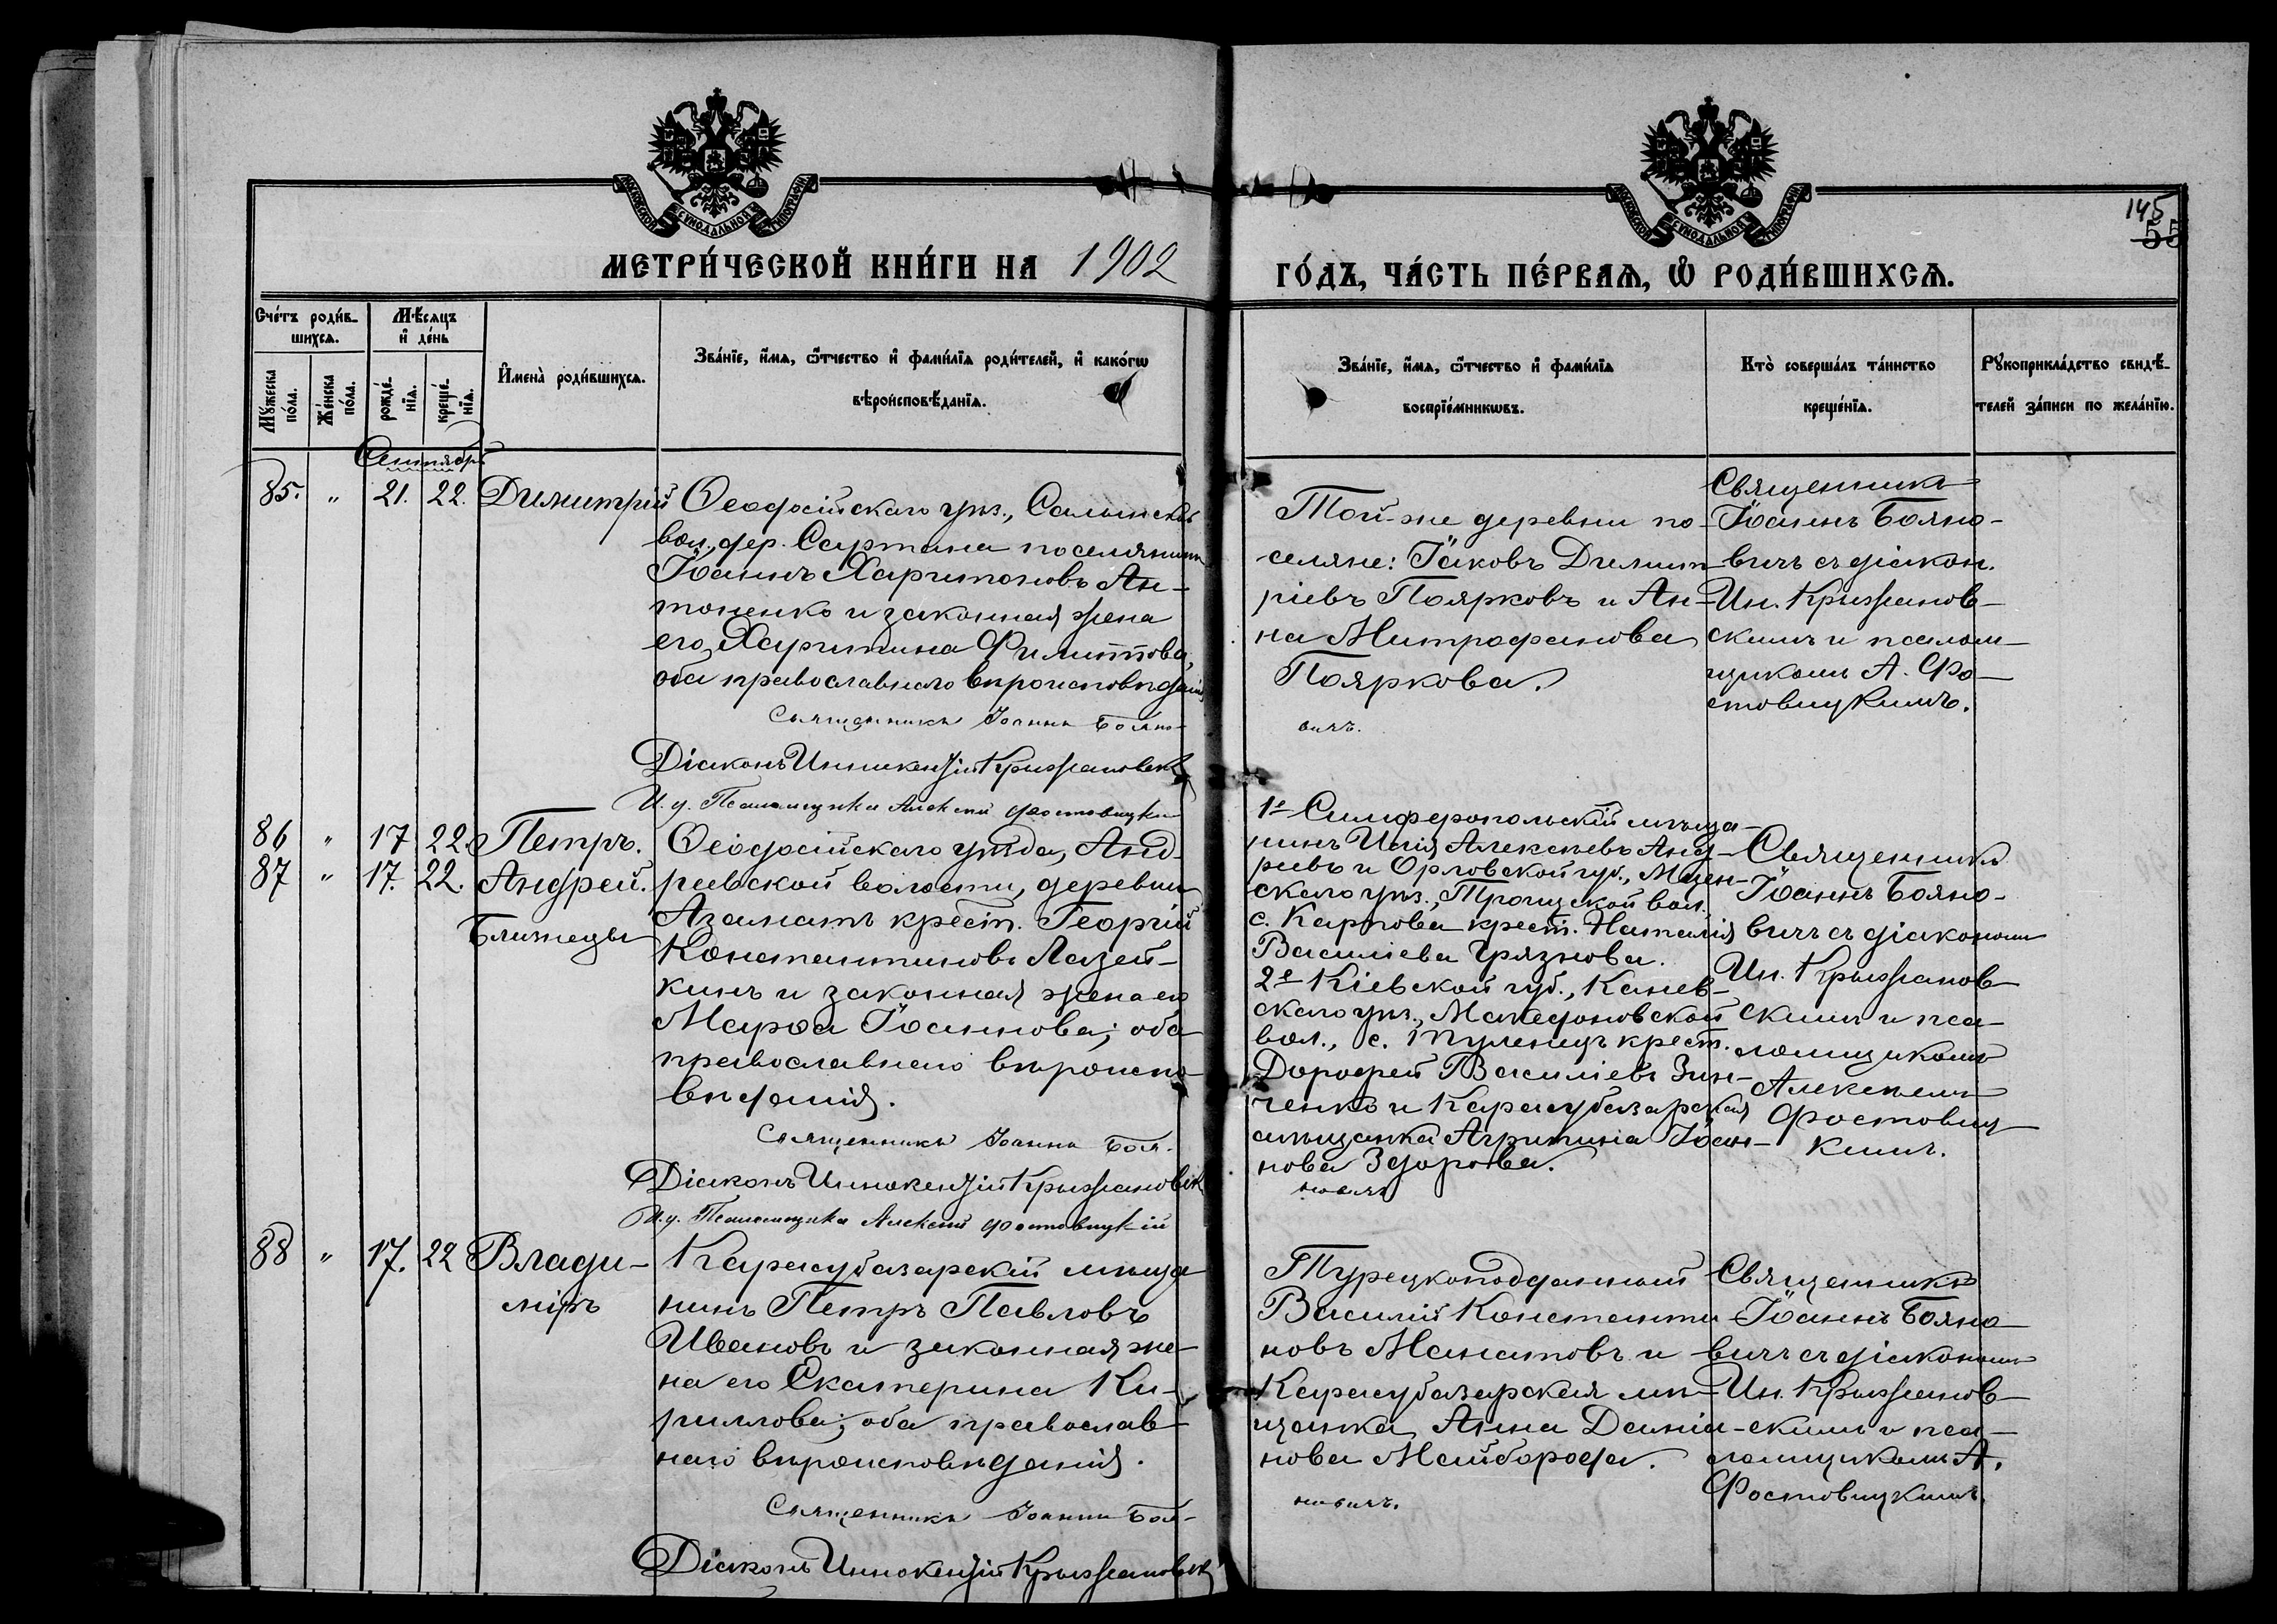 МОСКОВСКОЙ СѴНОДАЛЬНОЙ ТИПОГРАФІИ
МОСКОВСКОЙ СѴНОДАЛЬНОЙ ТИПОГРАФІИ
145
55
МЕТРИ́ЧЕСКОЙ КНИ́ГИ НА 1902
ГО́ДЪ, ЧА́СТЬ ПЕ́РВАѦ, Ѡ҆ РОДИ́ВШИХСѦ.
Сче́тъ роди́в-
шихсѧ.
Мѣ́сяцъ
и҆ де́нь
Мꙋ́жеска
по́ла.
Же́нска
по́ла.
рожде́-
нїѧ.
креще́-
нїѧ.
И҆мена̀ роди́вшихсѧ.
Зва́нїе, и҆́мѧ, ѻ҆́тчество и҆ фами́лїѧ роди́телей, и҆ како́гѡ
вѣроисповѣ́данїѧ.
Зва́нїе, и҆́мѧ, ѻ҆́тчество и҆ фами́лїѧ
воспрїе́мникѡвъ.
Кто̀ соверша́лъ та́инство
креще́нїѧ.
Рꙋкоприкла́дство свидѣ́-
телей за́писи по жела́нїю.
Сентябрь
85. " 21. 22. Димитрій
Ѳеодосійскаго уѣз., Салынской
вол., дер. Сартана поселянинъ
Іоаннъ Харитоновъ Ан-
тоненко и законная жена
его, Харитина Филиппова,
оба православнаго вѣроисповѣданія
Священникъ Іоаннъ Бояно-
Діаконъ Иннокентій Крыжановскій
И. д. Псаломщика Алексій Фостовицкій
Той-же деревни по-
селяне: Іаковъ Димит-
ріевъ Поярковъ и Ан-
на Митрофанова
Пояркова.
вичъ.
Священникъ
Іоаннъ Бояно-
вичъ съ діакон.
Ин. Крыжанов-
скимъ и псалом-
щикомъ А. Фо-
стовицкимъ.
86 " 17 22. Петръ.
87 " 17. 22. Андрей.
Близнецы
Ѳеодосійскаго уѣзда, Анд-
реевской волости, деревни
Азаматъ крест. Георгій
Константиновъ Лазей-
кинъ и законная жена его
Марѳа Іоаннова; оба
православнаго вѣроиспо-
вѣданія.
Священникъ Іоаннъ Боя-
Діаконъ Иннокентій Крыжановскій
И. д. Псаломщика Алексій Фостовицкій
1е Симферопольскій мѣща-
нинъ Илія Алексѣевъ Анд-
реевъ и Орловской губ., Мцен-
скаго уѣз., Троицкой вол.
с. Карпова крест. Наталія
Василіева Грязнова.
2е Кіевской губ., Канев-
скаго уѣз., Македоновской
вол., с. Тулинецъ крест.
Дорофей Василіевъ Зин-
ченко и Карасубазарская
мѣщанка Агрипина Іоан-
нова Здорова.
новичъ
Священникъ
Іоаннъ Бояно-
вичъ съ діакономъ
Ин. Крыжанов-
скимъ и пса-
ломщикомъ
Алексѣемъ
Фостовиц-
кимъ.
88 " 17. 22 Влади-
міръ
Карасубазарскій мѣща
нинъ Петръ Павловъ
Ивановъ и законная же-
на его Екатерина Ки-
риллова; оба православ-
наго вѣроисповѣданія.
Священникъ Іоаннъ Боя-
Діаконъ Иннокентій Крыжановскій
Турецкоподданный
Василій Константи-
новъ Манатовъ и
Карасубазарская мѣ-
щанка Анна Даніи-
лова Майборода.
новичъ.
Священникъ
Іоаннъ Бояно
вичъ съ діакономъ
Ин. Крыжанов-
скимъ и пса-
ломщикомъ А.
Фостовицкимъ.